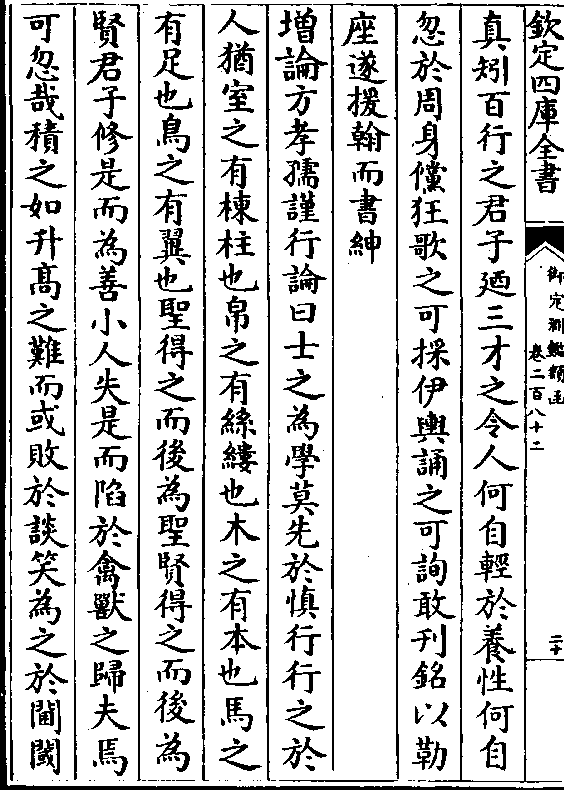 欽定四庫全書
御定淵鑑類函
卷二百八十二
二十
真矧百行之君子廼三才之令人何自輕於養性何自
忽於周身儻狂歌之可採伊輿誦之可詢敢刊銘以勒
座遂援翰而書紳
増論方孝孺謹行論曰士之為學莫先於慎行行之於
人猶室之有棟柱也帛之有絲縷也木之有本也馬之
有足也鳥之有翼也聖得之而後為聖賢得之而後為
賢君子修是而為善小人失是而陷於禽獸之歸夫焉
可忽哉積之如升髙之難而或敗於談笑為之於閫閾